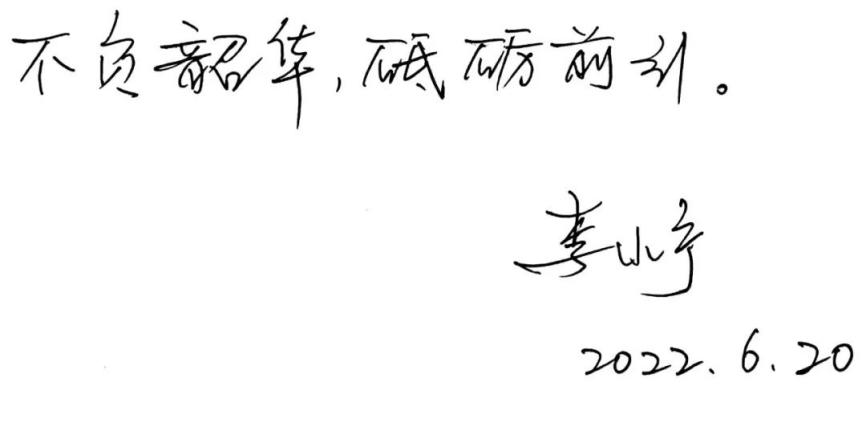 不负韶华,砥砺前行。
李小
2022.6.20